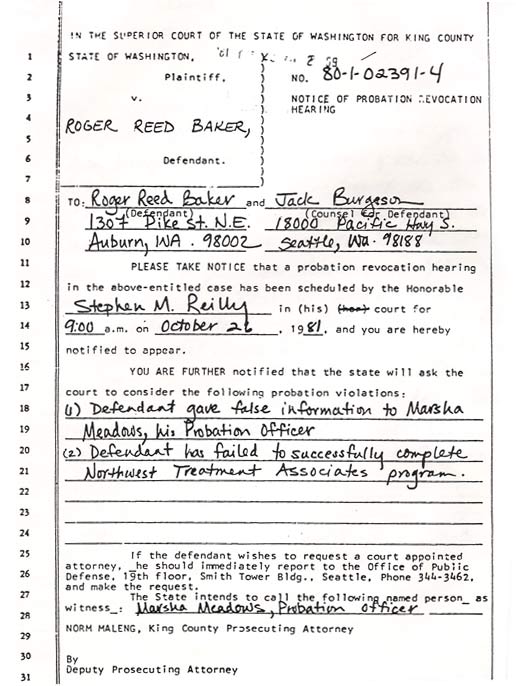 IN THE SUPERIOR COURT OF THE STATE OF WASHINGTON FOR KING COUNTY
1 STATE OF WASHINGTON,
2 Plaintiff, NO. 80-1-02391-4
3 v. NOTICE OF PROBATION REVOCATION
4 HEARING
5 ROGER REED BAKER,
6 Defendant.
7
8 TO: Roger Reed Baker and Jack Burgeson
(Defendant) (Counsel for Defendant)
9 1307 Pike St. N.E. 18000 Pacific Hwy S.
10 Auburn, WA. 98002 Seattle, Wa. 98188
11 PLEASE TAKE NOTICE that a probation revocation hearing
12 in the above-entitled case has been scheduled by the Honorable
13 Stephen M. Reilly in (his) (her) court for
14 9:00 a.m. on October 26, 1981, and you are hereby
15 notified to appear.
16 YOU ARE FURTHER notified that the state will ask the
17 court to consider the following probation violations:
18 (1) Defendant gave false information to Marsha
19 Meadows, his Probation Officer
20 (2) Defendant has failed to successfully complete
21 Northwest Treatment Associates program.
22
23
24
25 If the defendant wishes to request a court appointed
attorney, _he should immediately report to the Office of Public
26 Defense, 19th floor, Smith Tower Bldg., Seattle, Phone 344-3462,
and make the request.
27 The State intends to call the following named person_ as
28 witness_: Marsha Meadows, Probation Officer
29 NORM MALENG, King County Prosecuting Attorney
30 By
31 Deputy Prosecuting Attorney